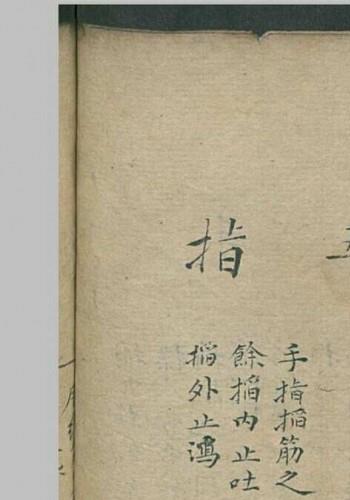 指
手指搯筋之
餘搯内止吐
搯外止瀉